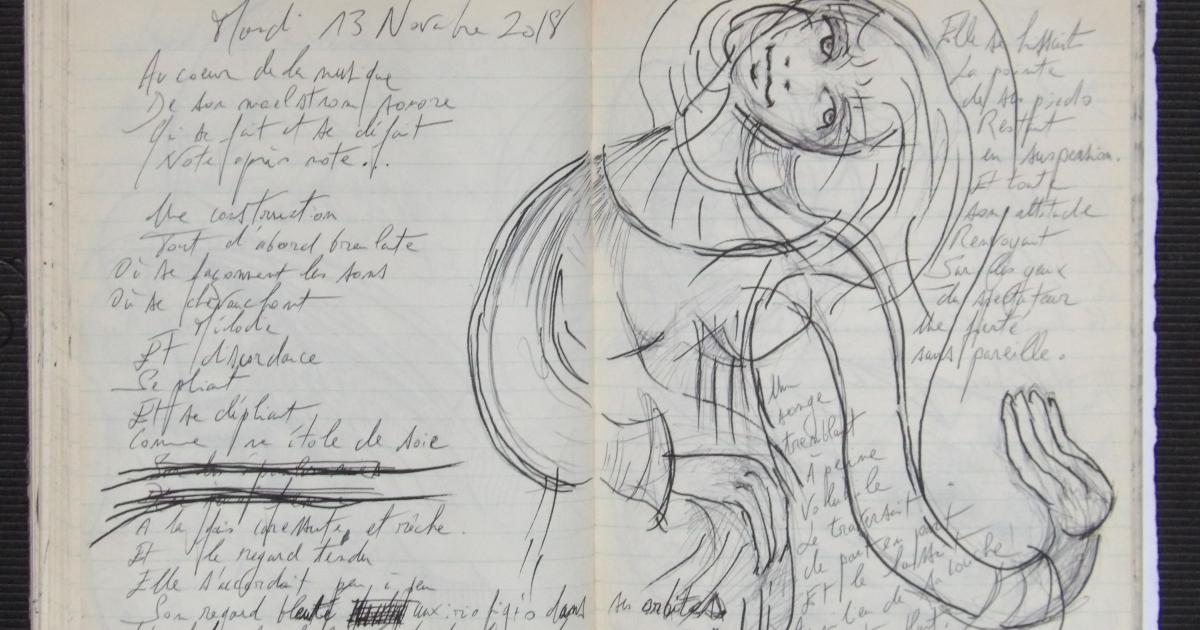 Mardi 13 Novembre 2018
Au coeur de la musique
De son maelstrom sonore
Qui se fait et se défait
Note après note...
Une construction
Tout d'abord branlante
Où se façonnent les sons
Où se chevauchent
Mélodie
Et discordance
Se pliant
Et se dépliant
Comme une étole de soie
A la fois caressante, et rèche.
Et le regard tendu
Elle s'accordait peu à peu
Son regard figés dans ses orbites
Elle se hissait
La pointe
de ses pieds
Restant
en suspension.
Et toute
son attitude
Renvoyant
Sur les yeux
du spectateur
Une fierté
sans pareille.
Un
songe
tremblant
À peine
Voilait-le
Le traversait
de part en part
Et le laissait